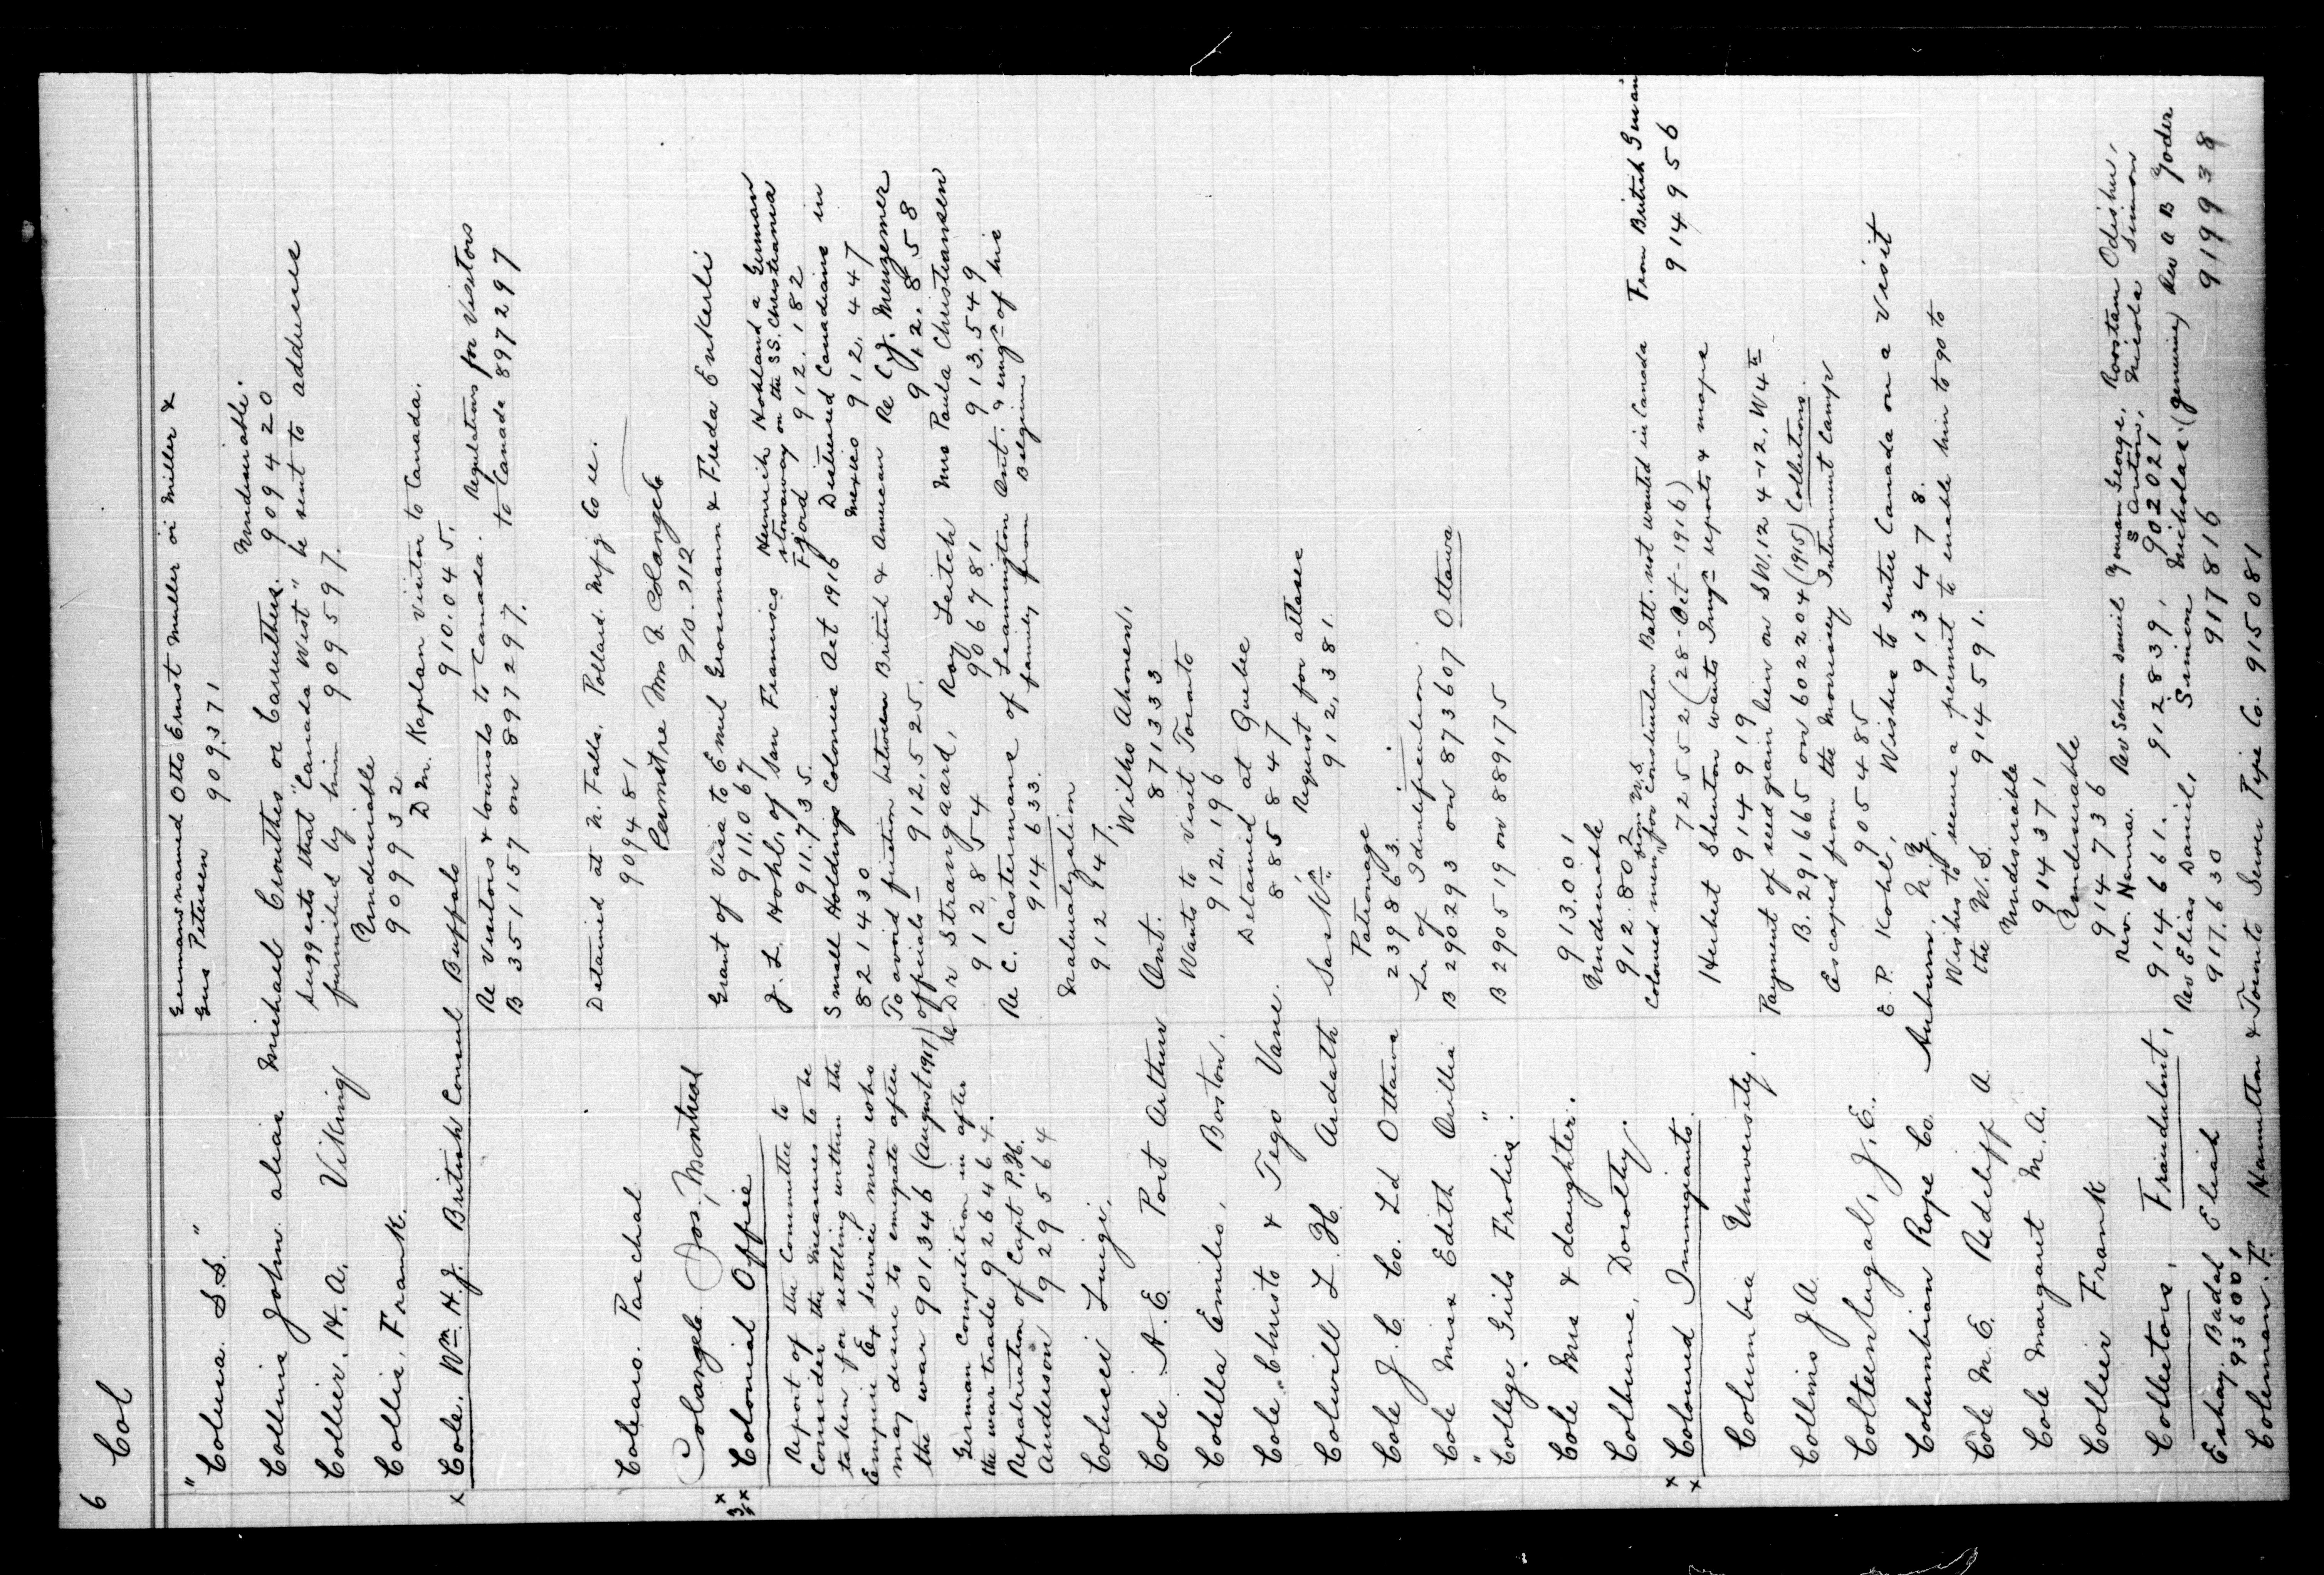 6 Col
"Colusa. S.S." Germans named Otto Ernst Muller or Miller &
Gus Petersen 909371
Collins John alias Michael Crouthes or Caruthers. Undesirable.
909420
Collier. H. A. Viking suggests that "Canada West" be sent to addresses
furnished by him 909597.
Collis, Frank. Undesirable
909932
D M. Kaplan Visitor to Canada.
910.045.
x Cole. Wm. H. J. British Consul Buffalo
Re Visitors & tourists to Canada. Regulations for Visitors
B 351157 on 897297. to Canada 897297
Colearo. Paschal Detained at N. Falls. Pollard Mfg Co re.
909481
Colangelo Jos, Montreal Permit re Mrs J. Colangelo
910.212
x 3/x Colonial Office Grant of Visa to Emil Grossmann & Freda Enkerli
911.067
J. L. Hohl, of San Francisco
911.735.
Heinrich Hohland a German
stowaway on the SS. Christiania
Fjord 912.182
Report of the Committee to
Consider the Measures to be
taken for settling within the
Empire Ex service men who
may desire to emigrate after
the war 901346 (August 1917)
Small Holdings Colonies Act 1916
821430
Distressed Canadians in
Mexico 912.447
To avoid friction between British & American
officials — 912,525.
Re C. J. Menzemer
912.858
German Competition in after
the war trade 926464.
Re Dr Strangaard,
912854
Roy Leitch
906781
Mrs Paula Christiansen
913.549
Repatriation of Capt P. H.
Anderson 929564
Re C. Castermans of Leamington Ont. & emign of his
914633. family from Belgium
Colucci Luigi. Naturalization
912947.
Cole A. E. Port Arthur Ont. Wilho Ahonen.
871333
Colella Emilio, Boston. Wants to visit Toronto
912,196
Cole Christo & Tego Vane. Detained at Quebec
885847
Colwill L. H. Ardath Sask. Request for atlases
912,381.
Cole J. C. Co. Ld Ottawa Patronage
239863.
Cole Miss Edith Orillia Lr of Identification
B 290293 on 873607 Ottawa
"College Girls Frolics". B 290519 on 889175
Cole Mrs & daughter. 913.001
Colburne, Dorothy. Undesirable
912.802
x x Coloured Immigrants. Coloured men from U.S. for Construction Batt. not wanted in Canada
725552 (28-Oct-1916)
From British Guiana
914956
Columbia University. Herbert Shenton wants Immgn reports & maps
914919
Collins J A. Payment of seed grain lien on SW. 12 4-12, W 4th
B. 291665 on 602204 (1915) Collections.
Coltenlugal, J. E. Escaped from the Morrissey Internment Camp
905485
Columbian Rope Co. Auburn, N.Y. E. P. Kohl, Wishes to enter Canada on a visit
913478.
Cole M. E. Redcliff A. Wishes to secure a permit to enable him to go to
the U.S. 914591.
Cole Margaret M. A. Undesirable
914371
Collier Frank Undesirable
914736
Collectors, Fraudulent, Rev. Hanna. 914661.
Rev Solomn Daniel 912839,
Yonan George, Roostam Odishu,
S Antons, Nicola Simon
902021
Eshay. Badal Eliah 93600, Rev Elias Daniel, 917.630
Simon Nicholas (genuine) 917816
Rev A B Yoder 919938
Coleman. F. Hamilton & Toronto Sewer Pipe Co. 915081